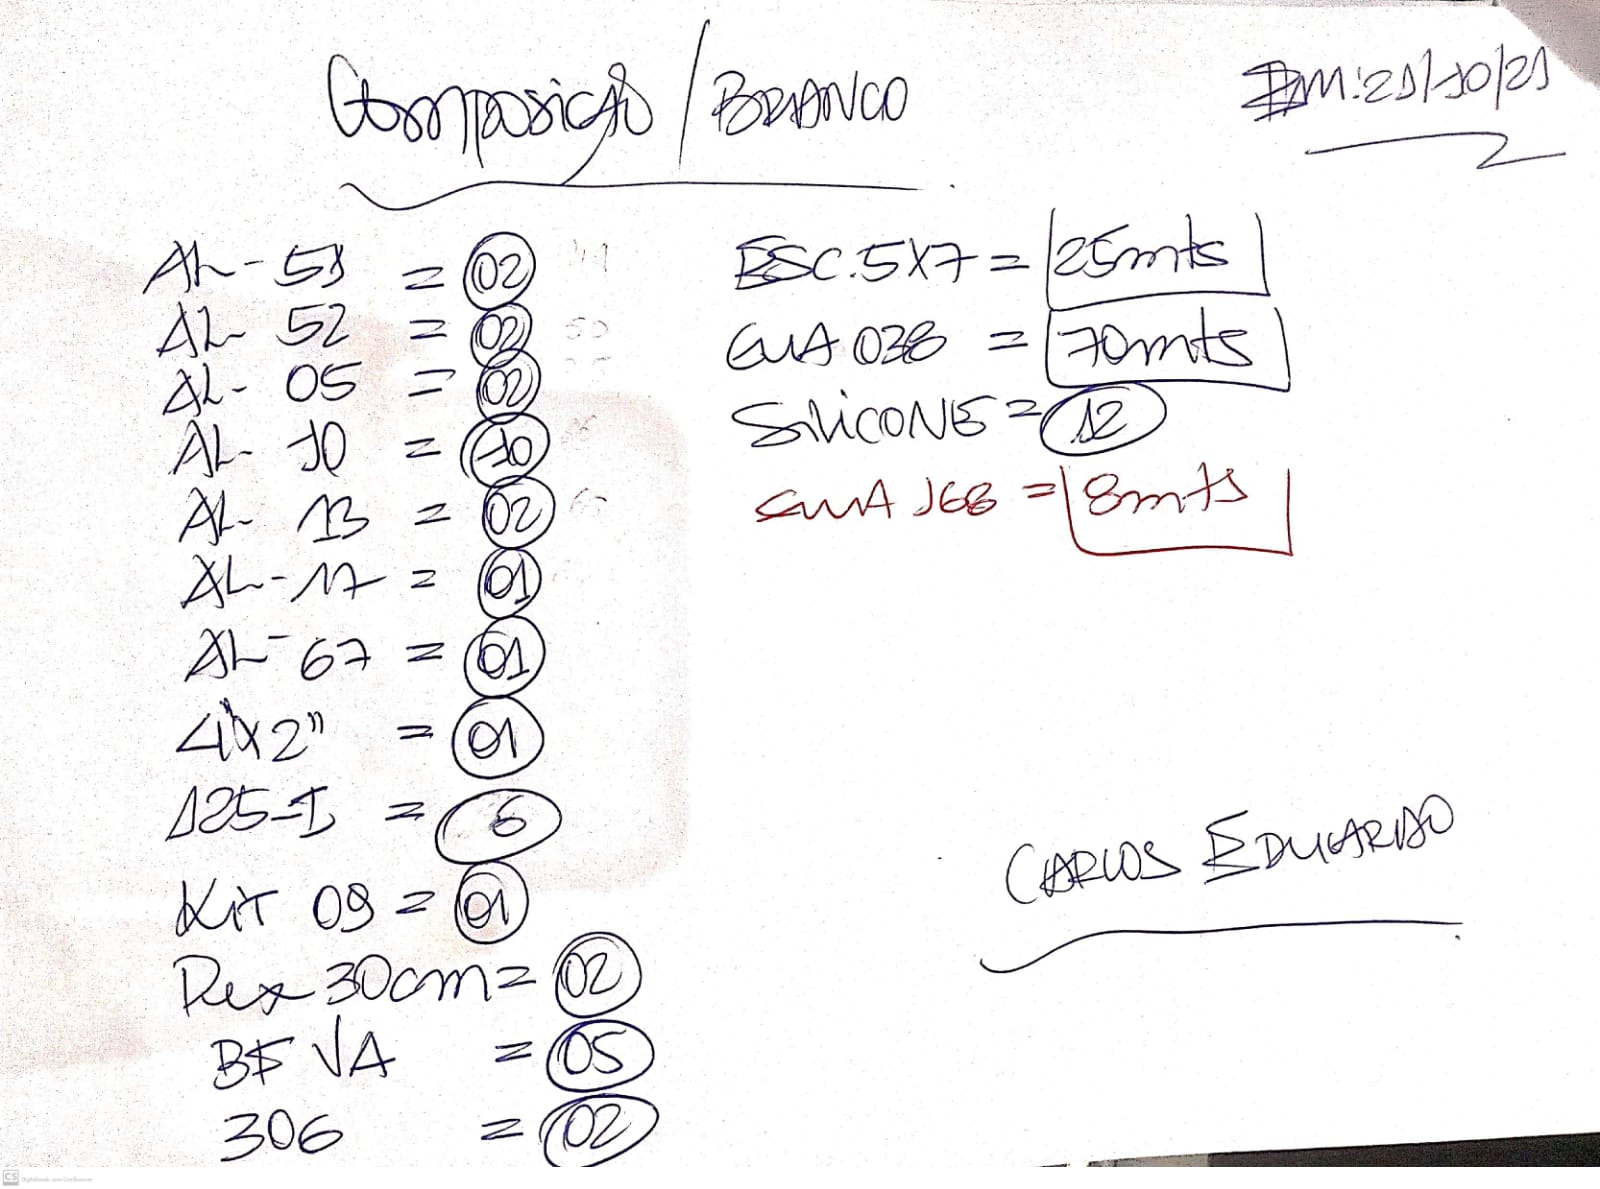 Composição / BRANCO
EM: 21/10/21
AL - 51 = 02
AL - 52 = 02
AL - 05 = 02
AL - 10 = 10
AL - 13 = 02
AL - 17 = 01
AL - 67 = 01
4"x2" = 01
125-I = 6
Kit 09 = 01
Pex 30cm = 02
BF VA = 05
306 = 02
ESC. 5x7 = 25mts
GUA 038 = 70mts
SiliCONE = 12
GUA 168 = 8mts
CARLOS EDUARDO
CS